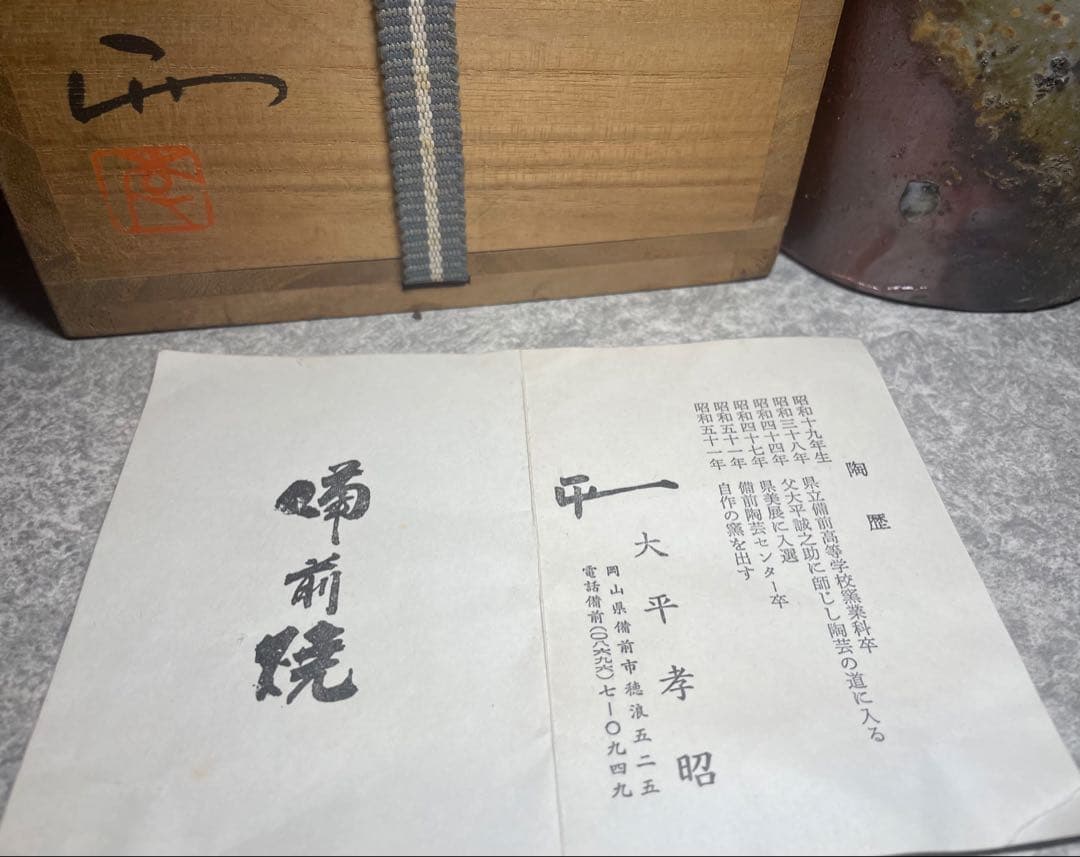 陶歴
昭和十九年生
昭和三十八年 県立備前高等学校窯業科卒
昭和四十四年 父大平誠之助に師じし陶芸の道に入る
昭和四十七年 県美展に入選
昭和五十一年 備前陶芸センター卒
昭和五十一年 自作の窯を出す
大平孝昭
岡山県備前市穂浪五二五
電話備前(〇八六九六)七―〇九四九
備前燒